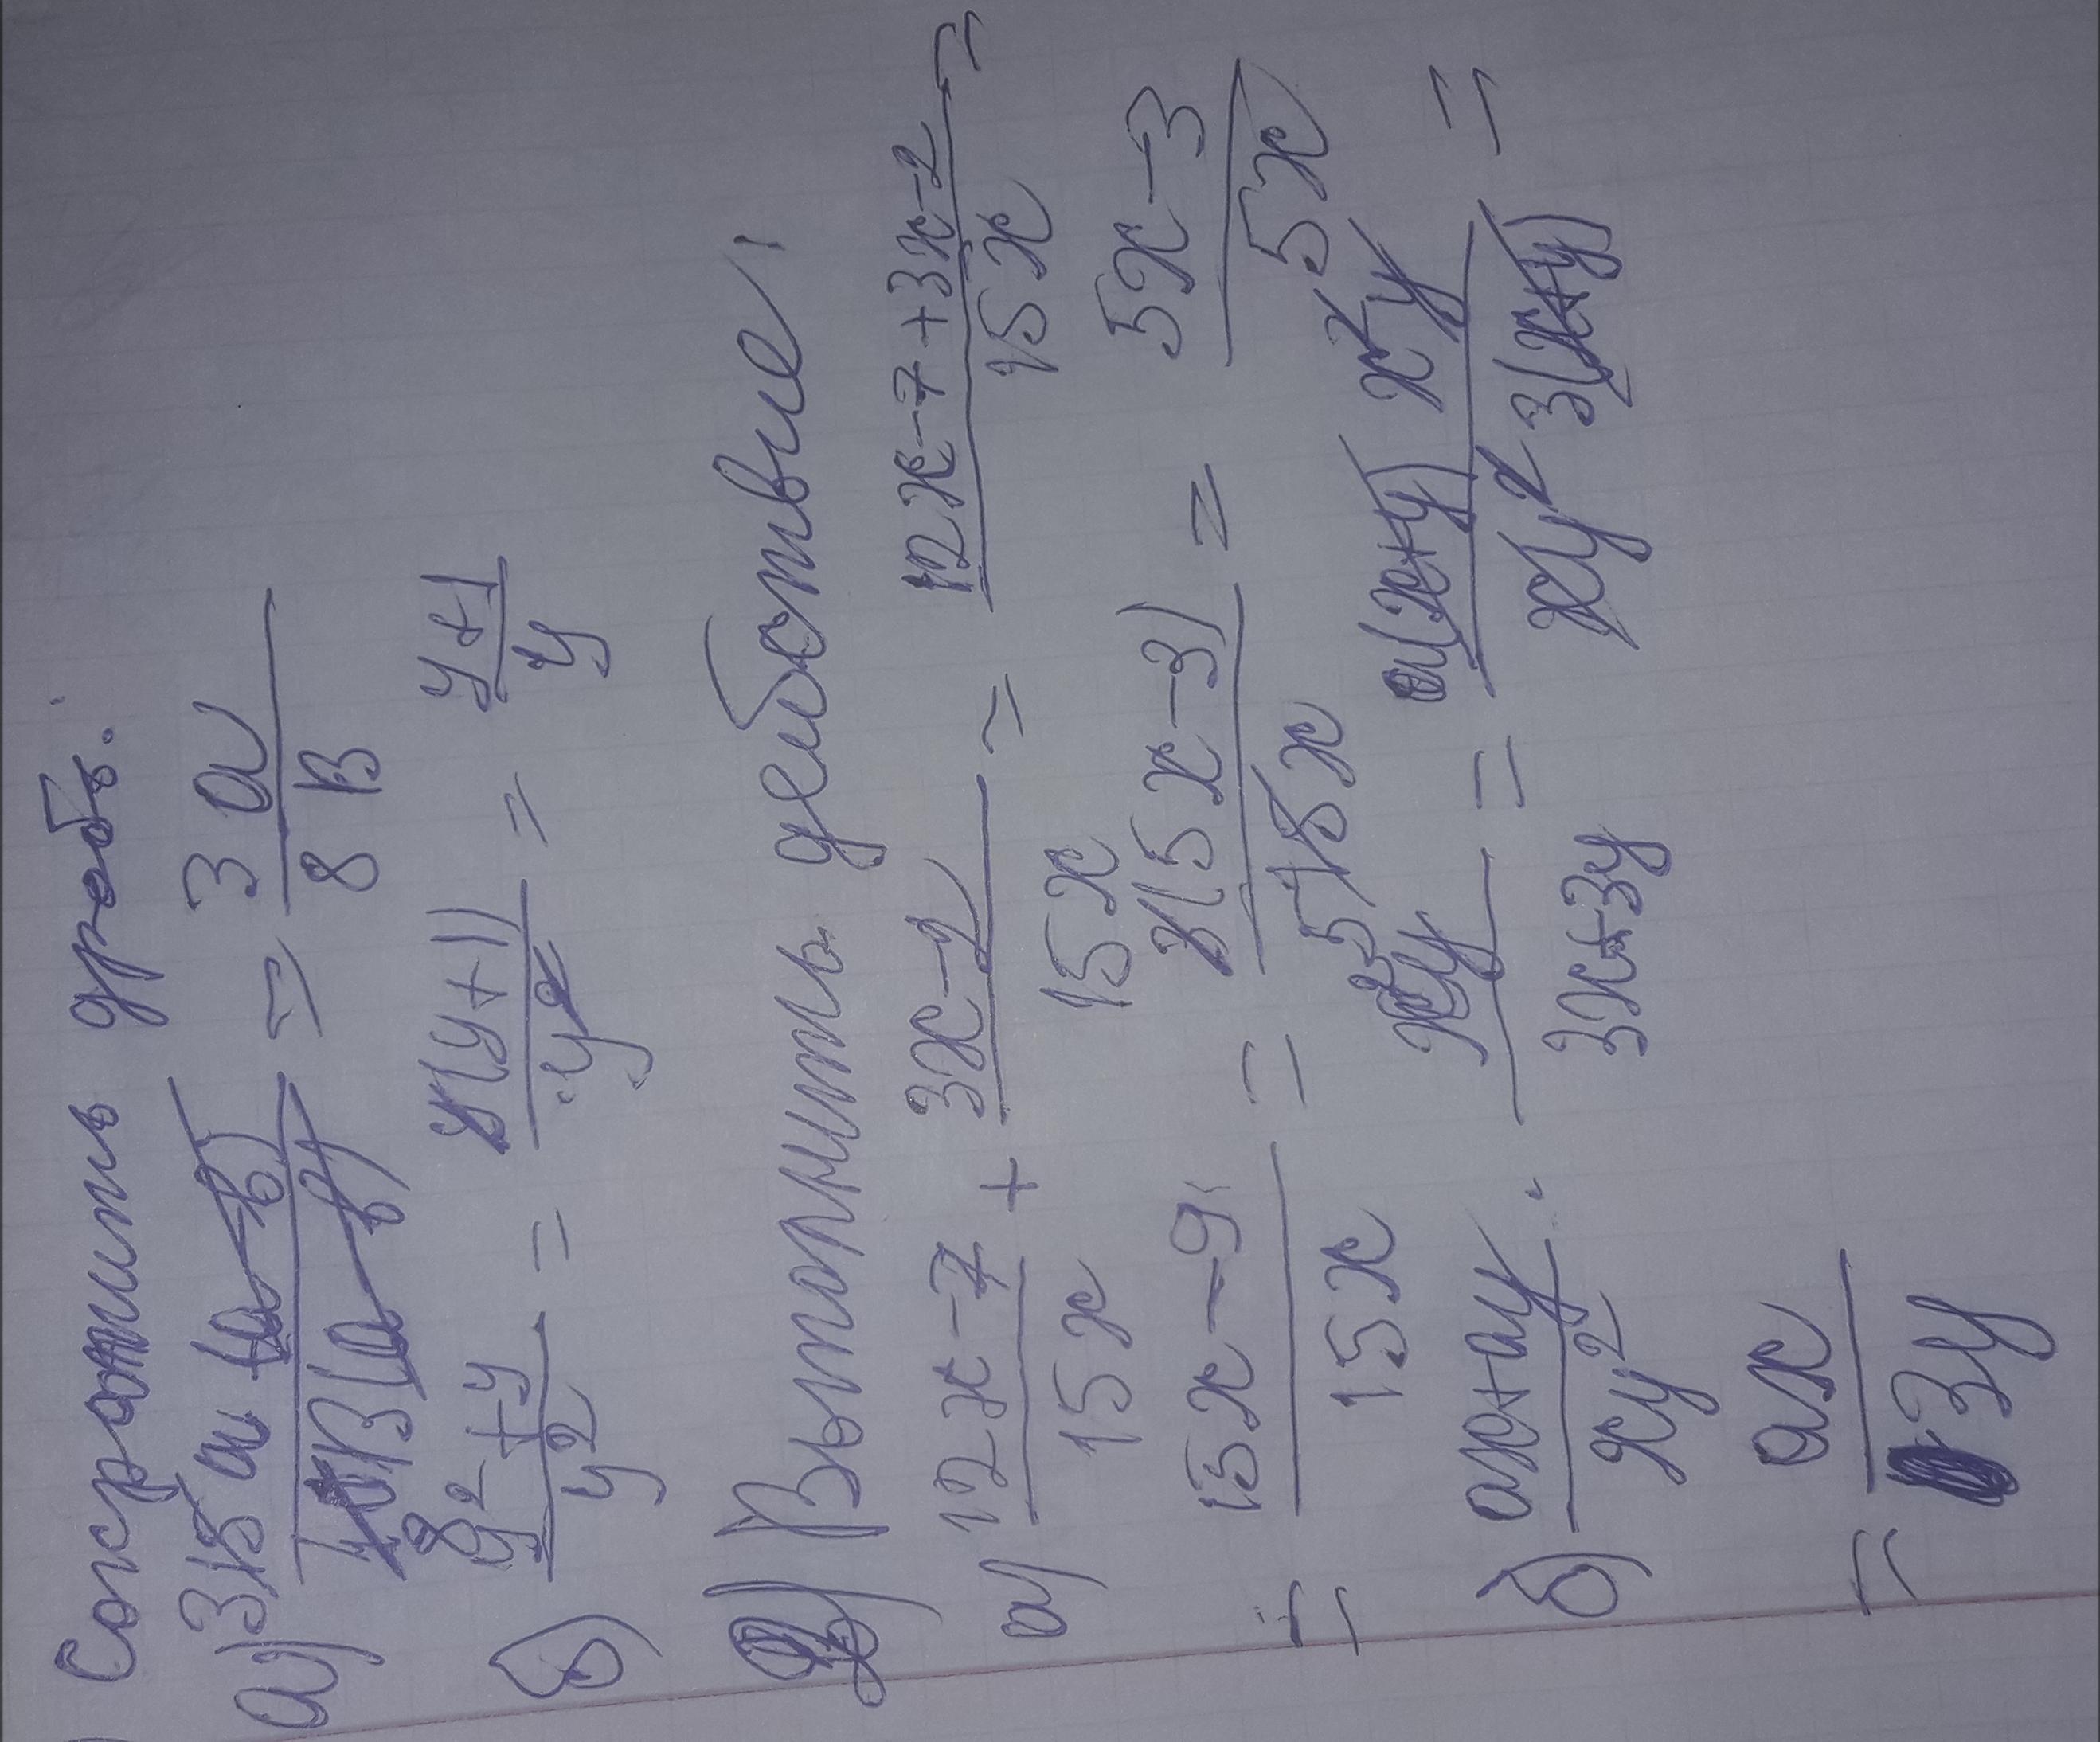 Сократить дробь:
а) 3 15 a (a-b) / 40B(a-b) = 3a / 8B
б) y² + y / y² = y(y+1) / y² = y+1 / y
2) Выполнить действие:
а) 12x-7 / 15x + 3x-2 / 15x = 12x-7+3x-2 / 15x =
= 15x-9 / 15x = 3(5x-3) / 5 15x = 5x-3 / 5x
б) ax+ay / xy² · x²y / 3x+3y = a(x+y) x²y / xy² 3(x+y) =
= ax / 3y